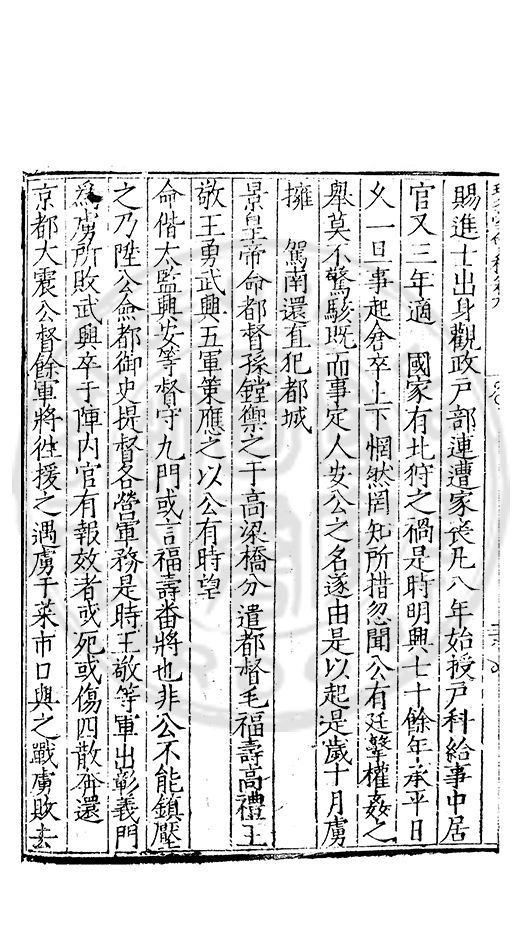 賜進士出身觀政戶部連遭家喪凡八年始授戶科給事中居
官又三年適　國家有北狩之禍是時明興七十餘年承平日
久一旦事起倉卒上下惘然罔知所措忽聞公有廷擊權姦之
舉莫不驚駭既而事定人安公之名遂由是以起是歲十月虜
擁　駕南還直犯都城
景皇帝命都督孫鏜禦之于高梁橋分遣都督毛福壽高禮王
敬王勇武興五軍策應之以公有時望
命偕太監興安等督守九門或言福壽番將也非公不能鎮壓
之乃陞公僉都御史提督各營軍務是時王敬等軍出彰義門
為虜所敗武興卒于陣內官有報效者或死或傷四散奔還
京都大震公督餘軍將徃援之遇虜于菜市口與之戰虜敗去